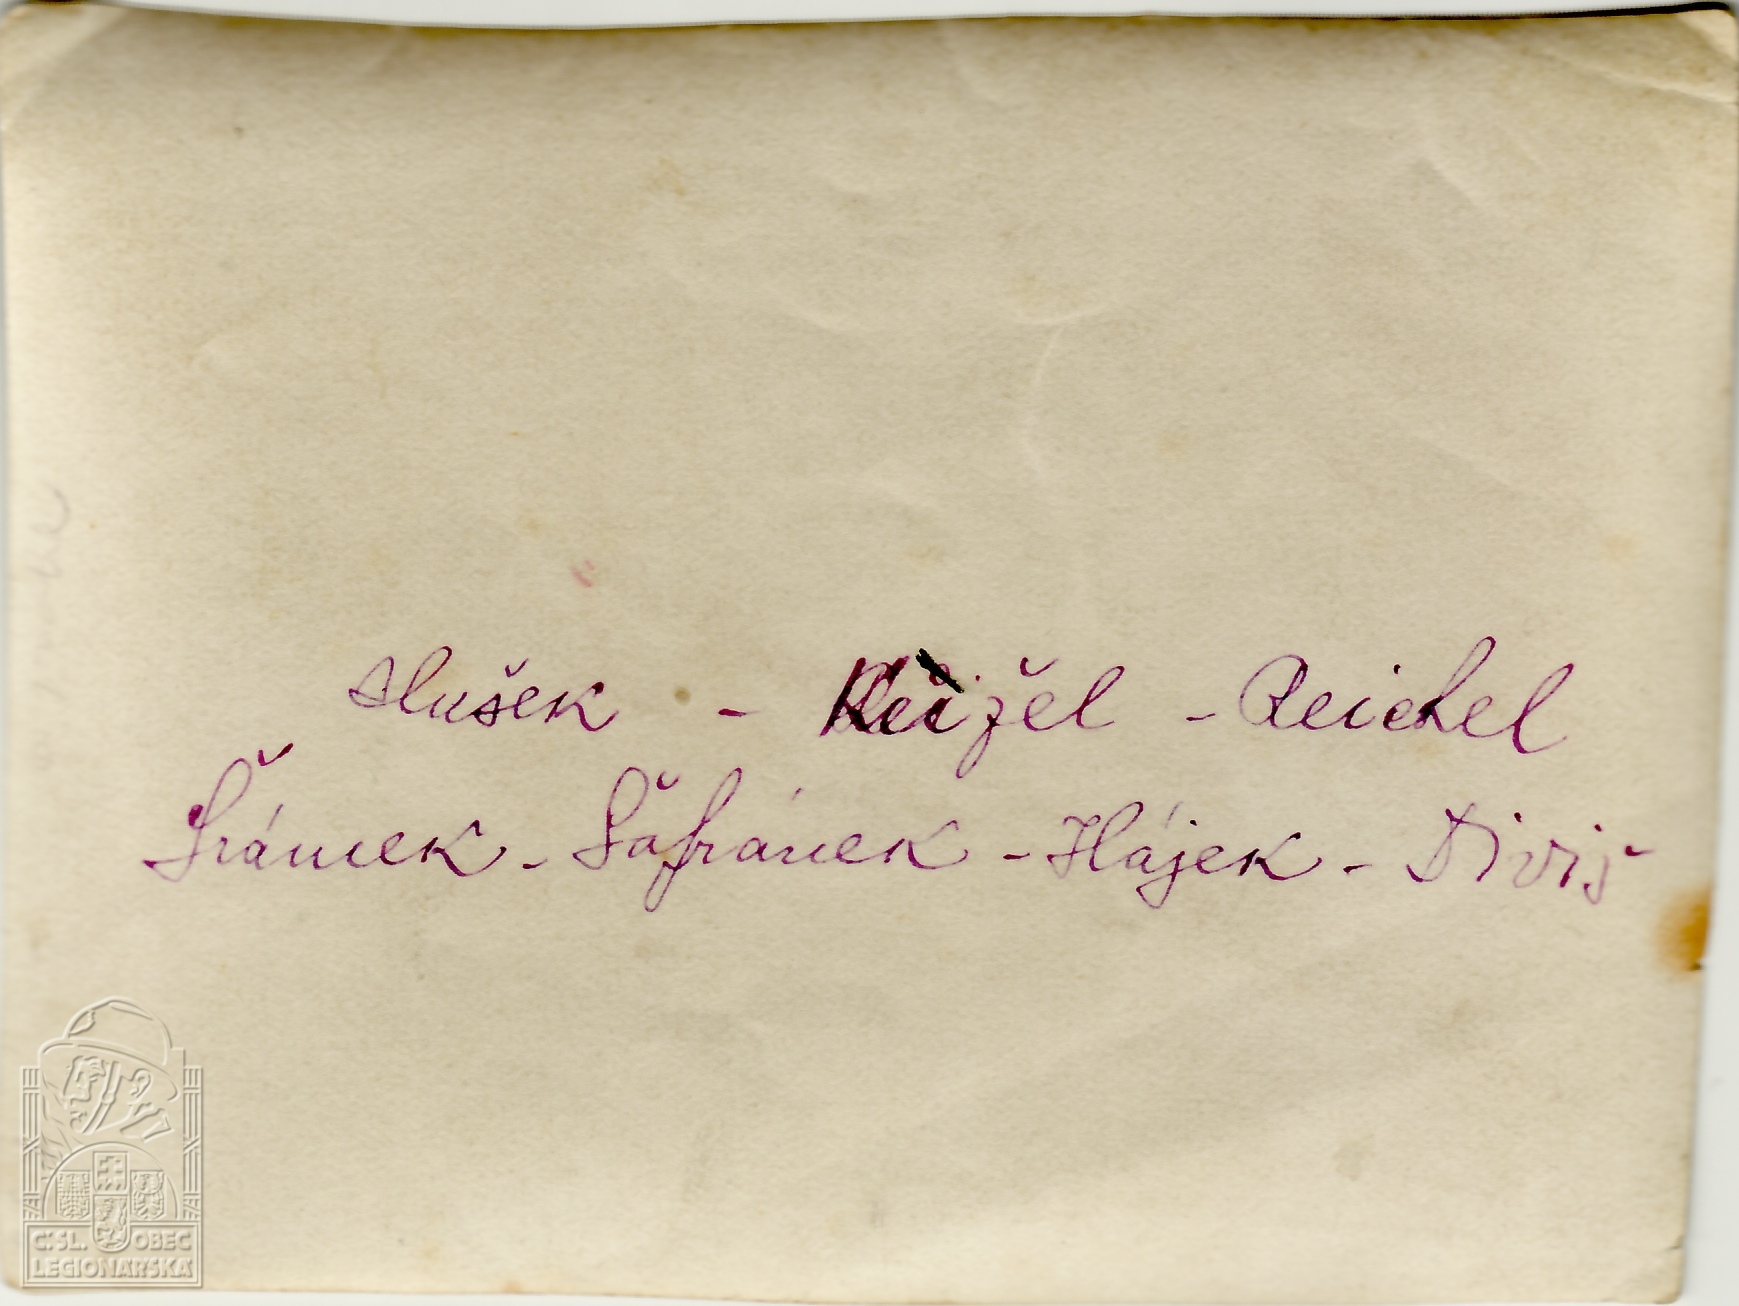 Hušek - Krejzel - Reichel
Šrámek - Šafránek - Hájek - Diviš
Č.SL. OBEC
LEGIONÁŘSKÁ